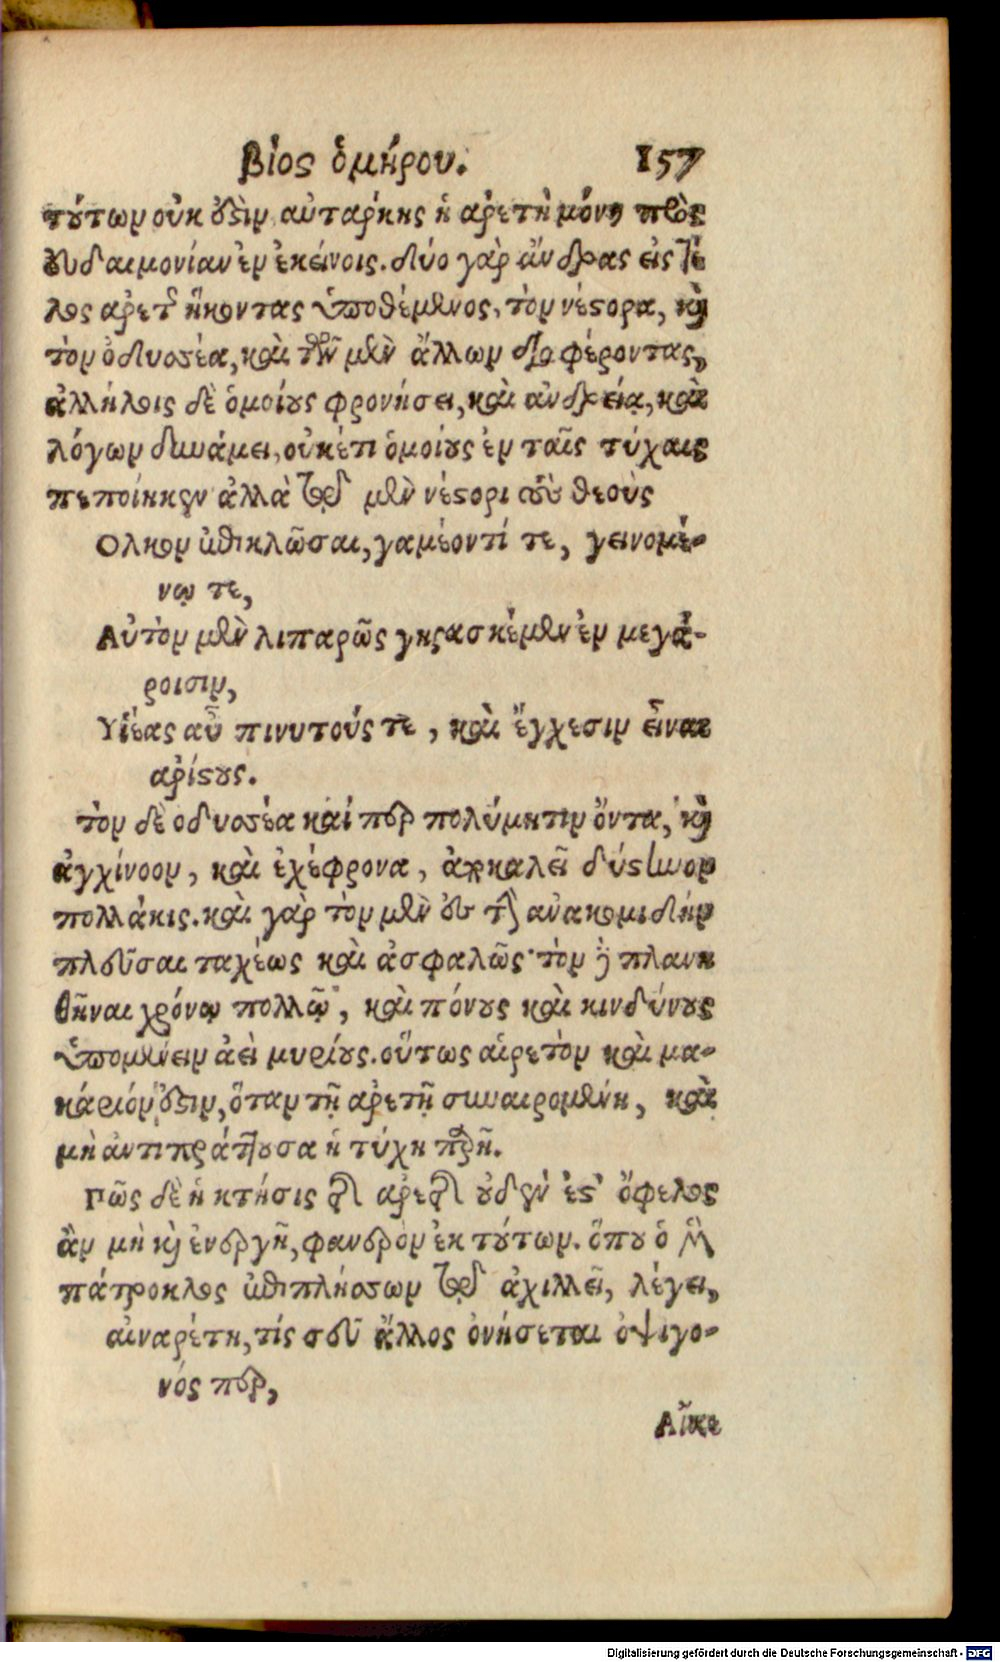 βίος ὁμήρου. 157
τούτων οὐκ ἔστιν αὐτάρκης ἡ ἀρετὴ μόνη πρὸς
εὐδαιμονίαν ἐν ἐκείνοις. δύο γὰρ ἄνδρας εἰς τέ
λος ἀρετῆς ἥκοντας ὑποθέμενος, τὸν νέστορα, καὶ
τὸν ὀδυσσέα, καὶ τῶν μὲν ἄλλων διαφέροντας,
ἀλλήλοις δὲ ὁμοίους φρονήσει, καὶ ἀνδρείᾳ, καὶ
λόγων δυνάμει, οὐκέτι ὁμοίους ἐν ταῖς τύχαις
πεποίηκεν ἀλλὰ τῷ μὲν νέστορι τοὺς θεοὺς
Ολκον ἐπικλῶσαι, γαμέοντί τε, γεινομέ-
νῳ τε,
Αὐτὸν μὲν λιπαρῶς γηρασκέμεν ἐν μεγά-
ροισιν,
Υἱέας αὖ πινυτούς τε, καὶ ἔγχεσιν εἶναι
ἀρίστους.
τὸν δὲ ὀδυσσέα καί περ πολύμητιν ὄντα, καὶ
ἀγχίνοον, καὶ ἐχέφρονα, ἀποκαλεῖ δύστηνον
πολλάκις. καὶ γὰρ τὸν μὲν εἰς τὴν ἀνακομιδὴν
πλεῦσαι ταχέως καὶ ἀσφαλῶς· τὸν δὲ πλανη
θῆναι χρόνῳ πολλῷ, καὶ πόνους καὶ κινδύνους
ὑπομένειν ἀεὶ μυρίους. οὕτως αἱρετὸν καὶ μα-
κάριόν ἐστιν, ὅταν τῇ ἀρετῇ συναιρομένη, καὶ
μὴ ἀντιπράττουσα ἡ τύχη παρῇ.
Πῶς δὲ ἡ κτῆσις τῆς ἀρετῆς οὐδὲν ἔστ' ὄφελος
ἂν μὴ καὶ ἐνεργῇ, φανερὸν ἐκ τούτων. ὅπου ὁ μὲν
πάτροκλος ἐπιπλήσσων τῷ ἀχιλλεῖ, λέγει,
αἰναρέτη, τίς σεῦ ἄλλος ὀνήσεται ὀψιγο-
νός περ,
Αἴκε
Digitalisierung gefördert durch die Deutsche Forschungsgemeinschaft - DFG